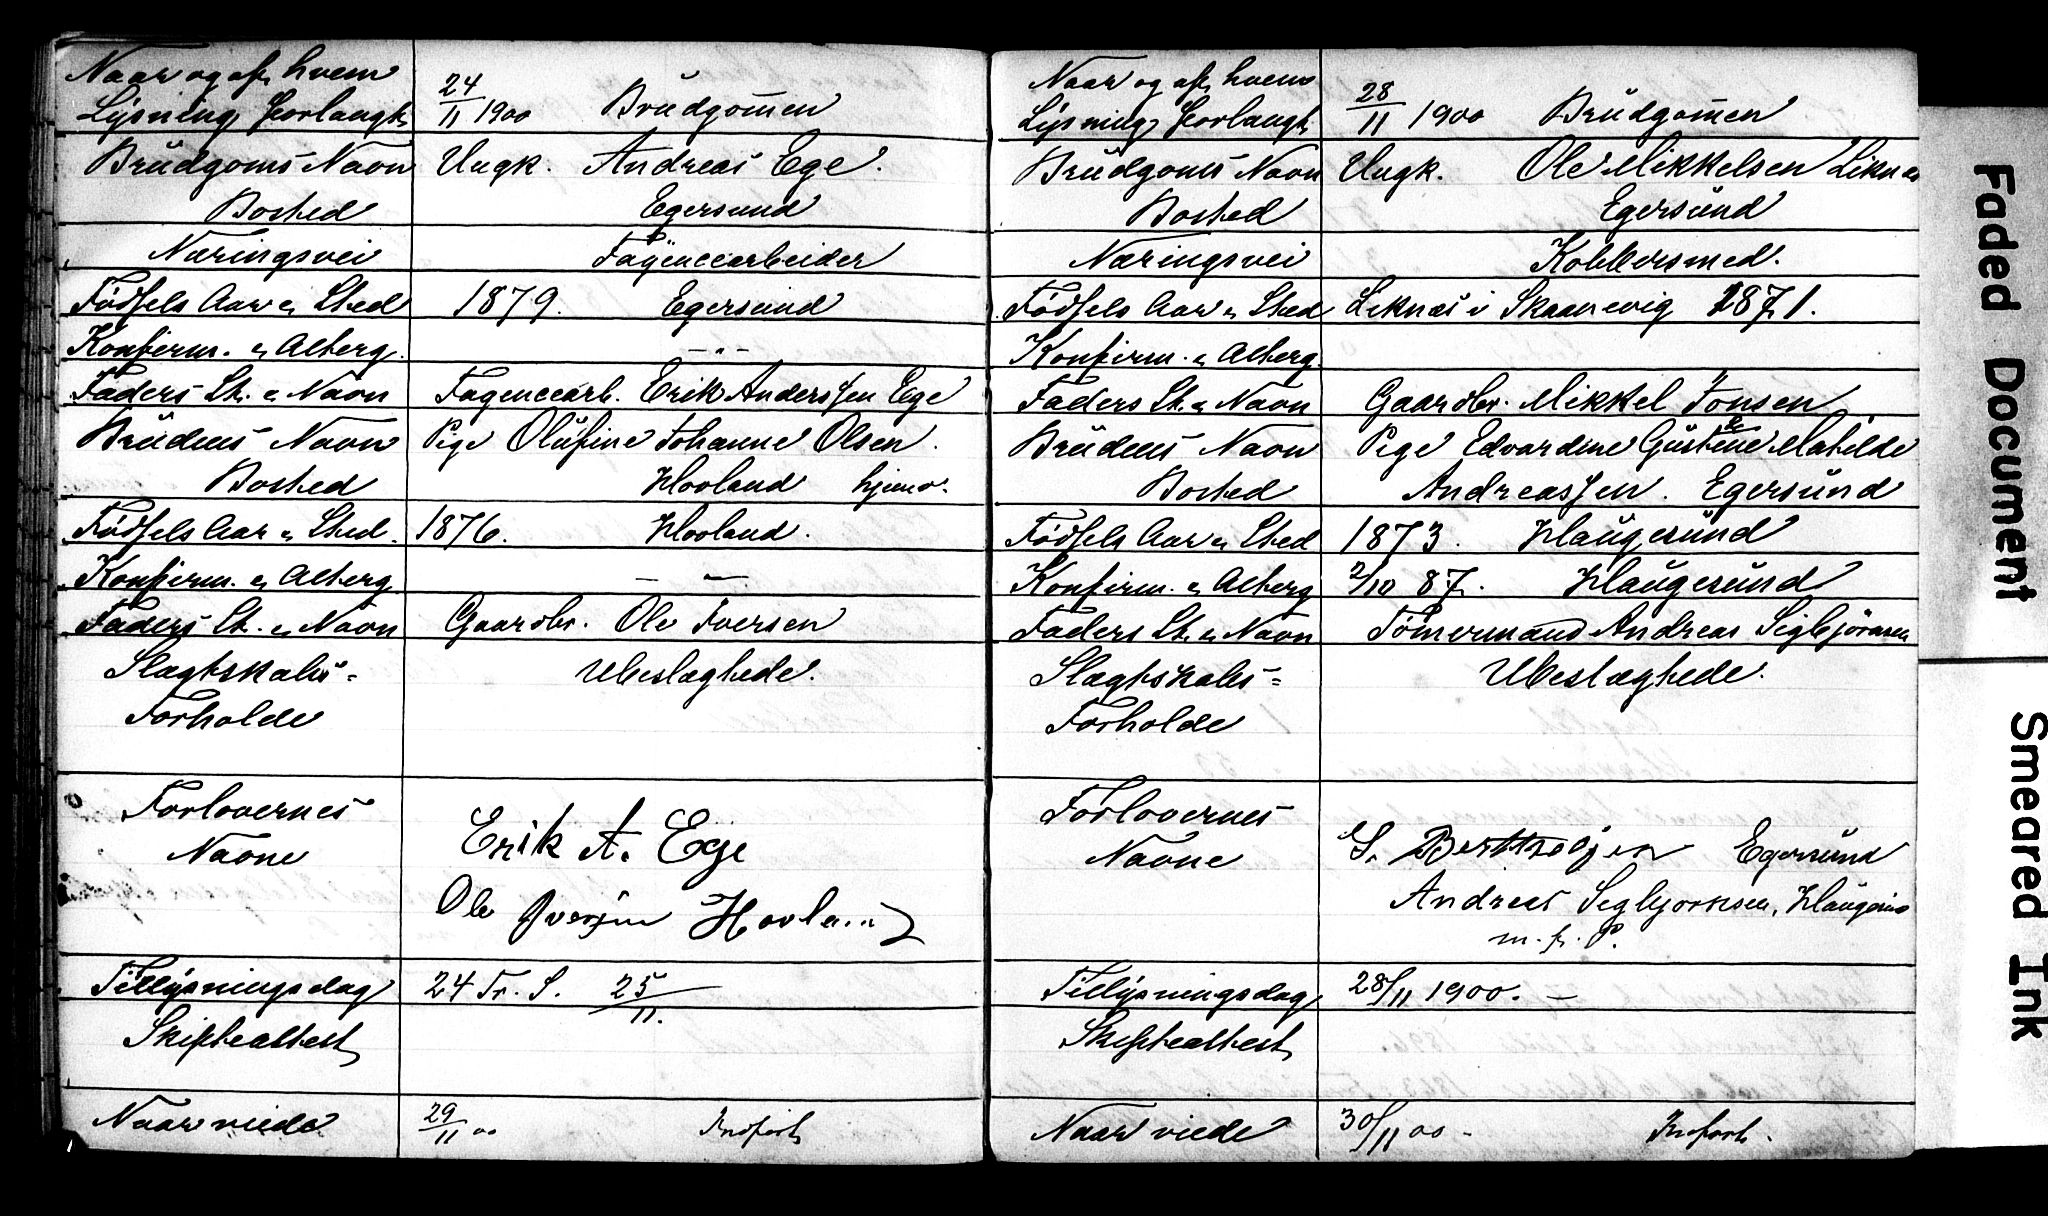 Naar og af hvem
Lysning forlangt 24/11 1900 Brüdgom̄en
Brüdgoms Navn Ungk. Andreas Ege.
Bosted Egersund
Næringsvei Fayencearbeider
Fødsels Aar " Sted 1879. Egersund
Konfirm. " Attergj. — " —
Faders St. " Navn Fayencearb. Erik Anderssen Ege
Brüdens Navn Pige Olüfine Johanne Olsen.
Bosted Hovland hjemv.
Fødsels Aar " Sted. 1876. Hovland.
Konfirm. " Alterg — " —
Faders St. " Navn Gaardbr. Ole Iversen
Slægtskabs- Ubeslægtede.
Forholde
Forlovernes
Navne
Erik A. Ege
Ole Iversen Hovland
Tillysningsdag 24 Tr. S. 25/11.
Skifteattest
Naar viede 29/11 00 Indført
Naar og af hvem
Lysning forlangt 28/11 1900 Brüdgom̄en
Brüdgoms Navn Ungk. Ole Mikkelsen Liknæs
Bosted Egersünd
Næringsvei Kobbersmed.
Fødsels Aar " Sted Liknæs i Skaanevig 1871.
Konfirm. " Alterg.
Faders St. " Navn Gaardbr. Mikkel Jonsen
Brüdens Navn Pige Edvardine Güstine Matilde
Bosted Andreassen. Egersünd
Fødsels Aar " Sted 1873. Haügesünd
Konfirm. " Alterg 2/10 87. Haügesünd
Faders St. " Navn Töm̄ermand Andreas Sigbjörnsen
Slægtskabs= Ubeslægtede.
Forholde
Forlovernes
Navne
Egersünd
Andreas Sigbjørnsen, Haügesü
m. f. P.
Tillysningsdag 28/11 1900. —
Skifteattest
Naar viede 30/11 00 - Indført.
Faded Document
Smeared Ink